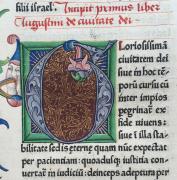 filii israel. Incipit primus liber
Augustini de ciuitate dei
Gloriosissimā
ciuitatem dei
siue in hoc tē⸗
porū cursu cū
inter impios
peregrinat̄ ex
fide uiuens:
siue ī illa stabi
bilitate sedis eternę quam nūc expectat
per pacientiam: quoadusq; iustitia con⸗
uertat̄ in iudicium: deinceps adeptura per